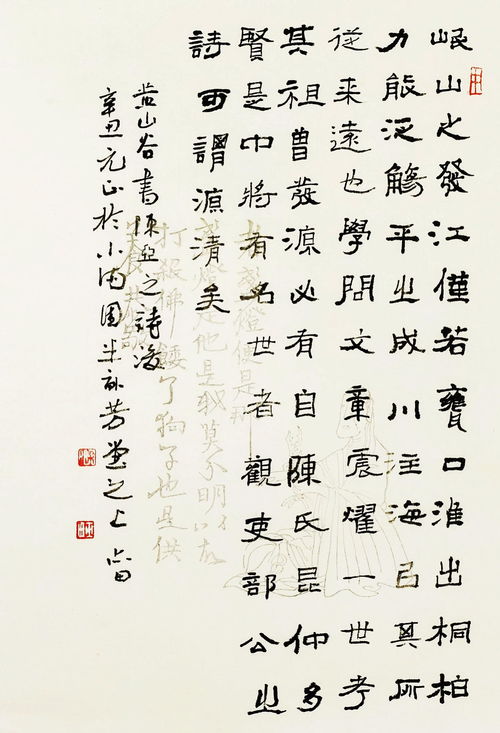 岷山之發江僅若甕口淮出桐柏
力能泛觴卒之成川注海㠯其所
從来遠也學問文章震耀一世考
其祖曾發源必有自陳氏昆仲多
賢是中將有名世者觀吏部公之
詩可謂源清矣
黄山谷書陳亞之詩後
辛丑元正於小滿園芳堂之上
燈便是那
是他是我莫分明
打殺佛餧了狗子也是供